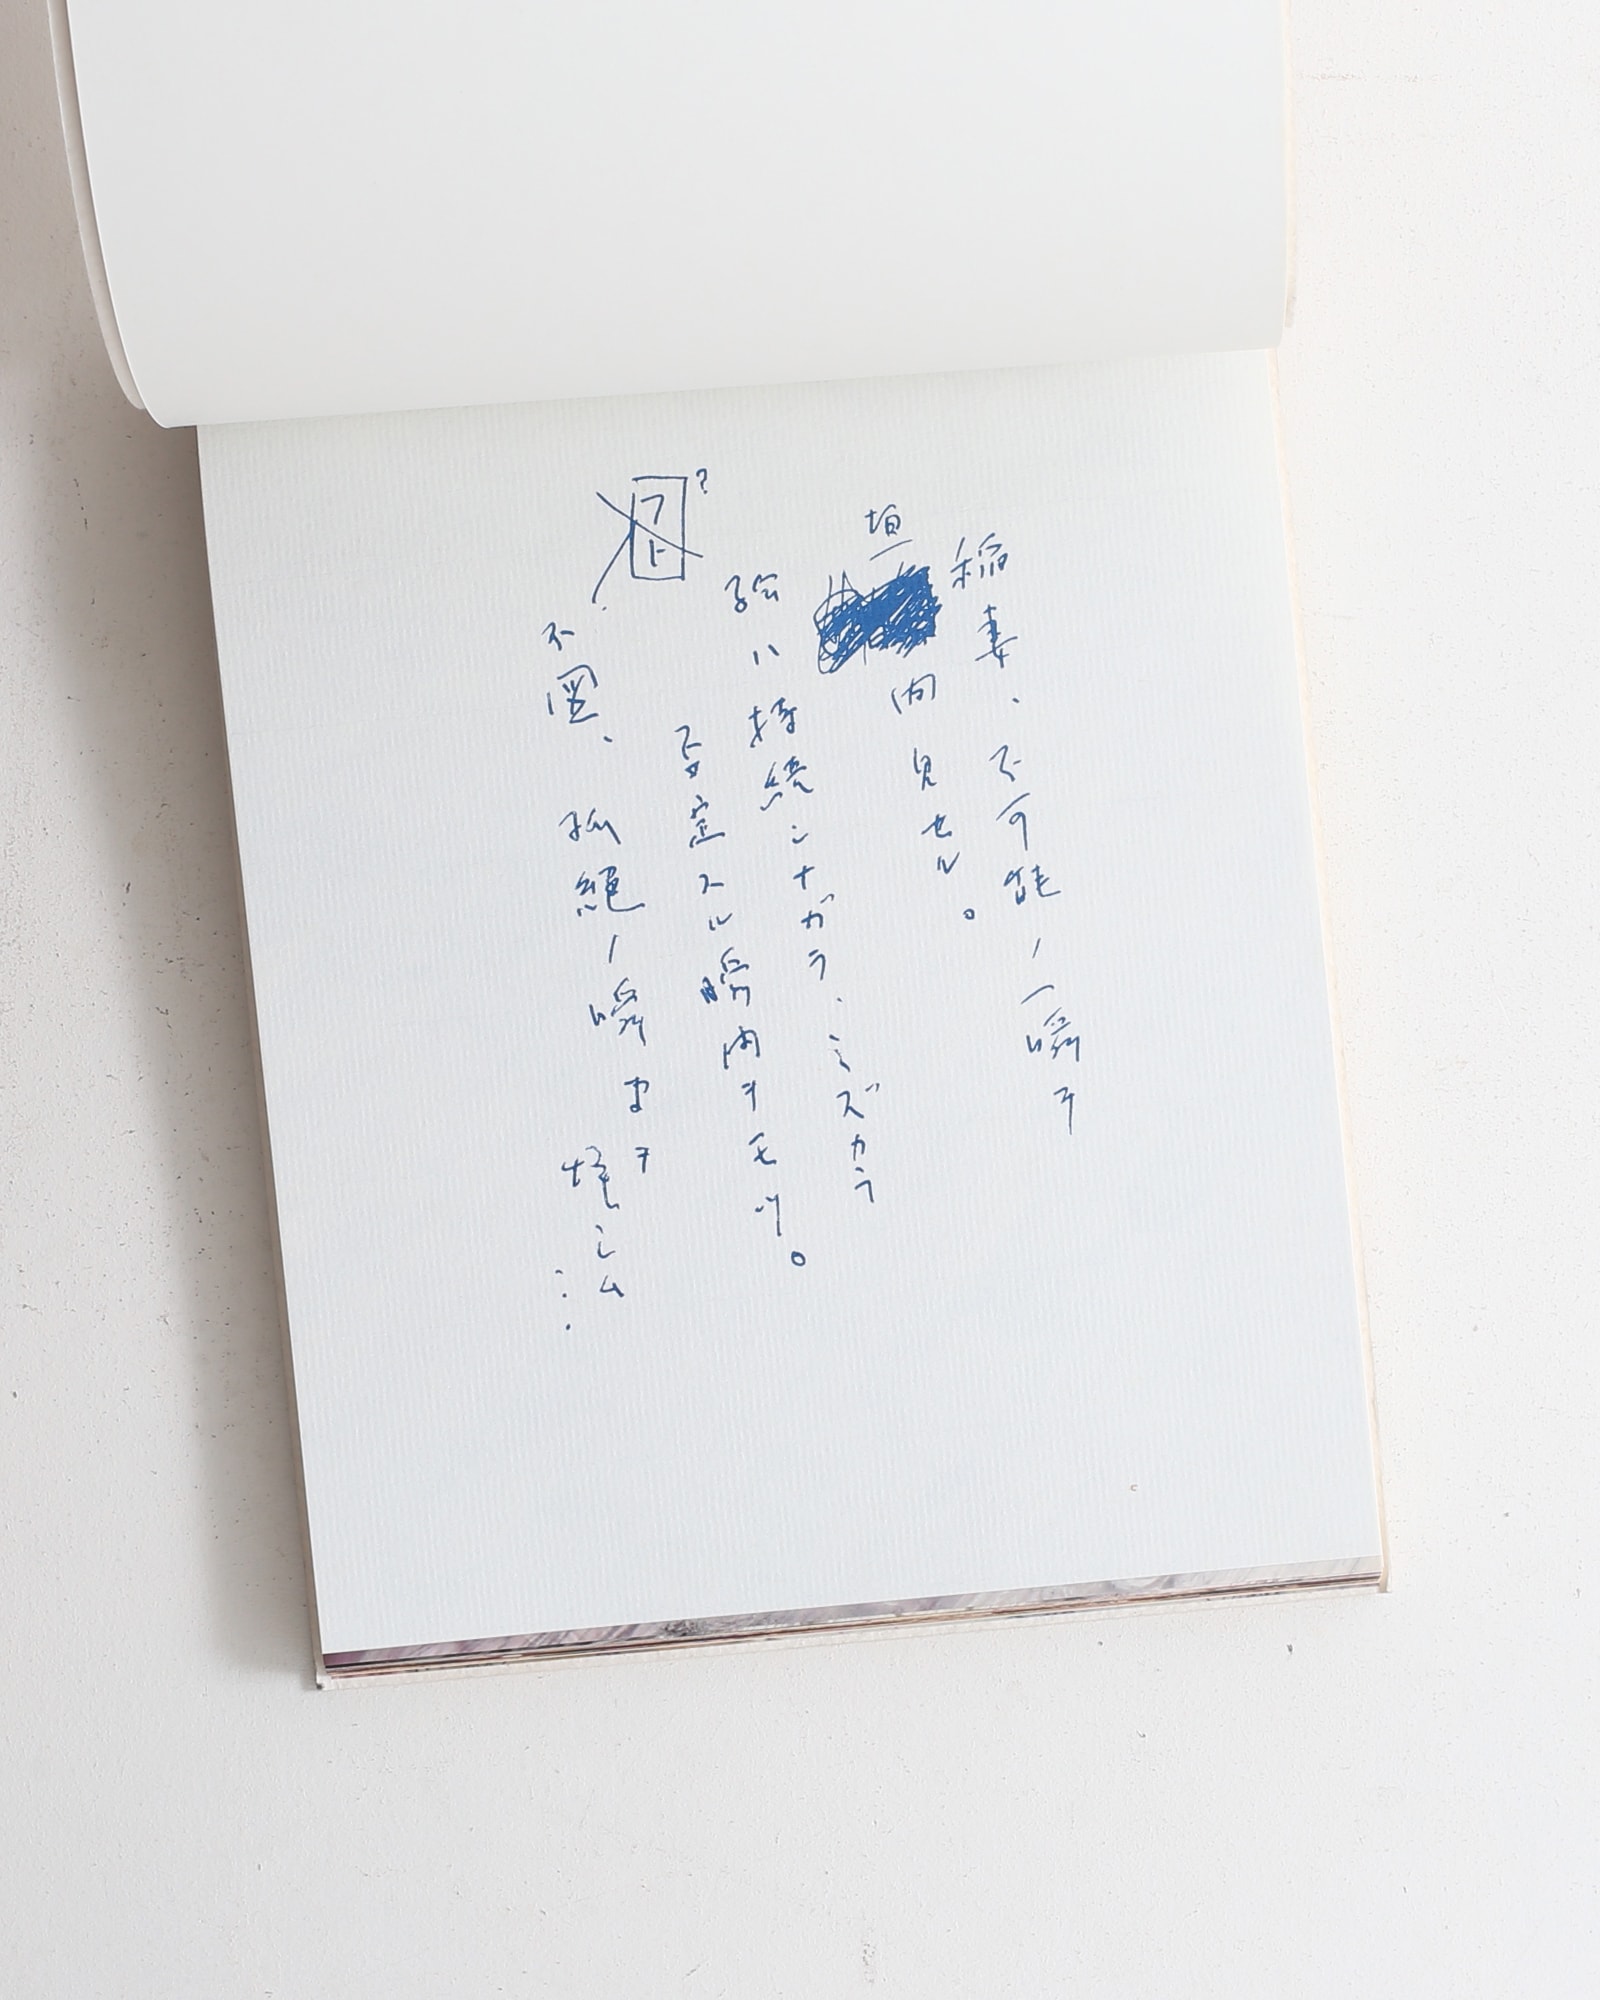 稲妻、不可能ノ一瞬ヲ
垣間見セル。
絵ハ持続シナガラ、ミズカラ
否定スル瞬間ヲモツ。
フト?
不図、孤絶ノ瞬マヲ
シム…